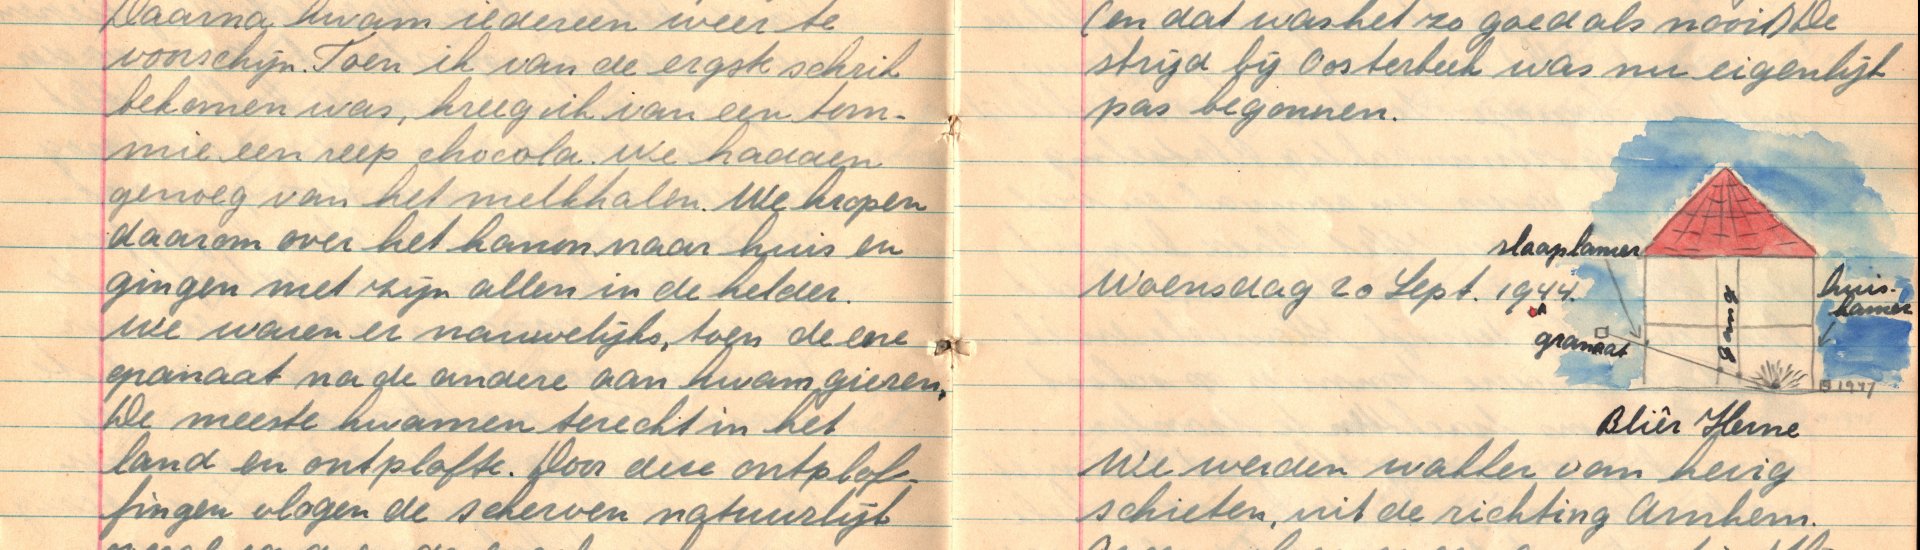 Daarna kwam iedereen weer te
voorschijn. Toen ik van de ergste schrik
bekomen was, kreeg ik van een tom-
mie een reep chocola. We hadden
genoeg van het melkhalen. We kropen
daarom over het kanon naar huis en
gingen met zijn allen in de kelder.
We waren er nauwelijks, toen de ene
granaat na de andere aan kwam gieren,
De meeste kwamen terecht in het
land en ontplofte. Door deze ontplof-
fingen vlogen de scherven natuurlijk
(en dat was het zo goed als nooit) De
strijd bij Oosterbeek was nu eigenlijk
pas begonnen.
slaapkamer
Woensdag 20 Sept. 1944.
huis-
kamer
gang
granaat
B 1947
Bliêr Herne
We werden wakker van hevig
schieten, uit de richting Arnhem.